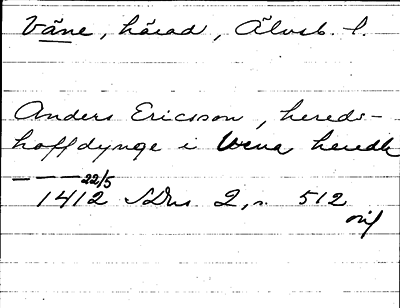 Väne, härad, Älvsb. l.
Anders Ericsson, hereds-
höffdynge i Wena heredh
— — — 22/5
1412 SDns 2, s. 512
orig